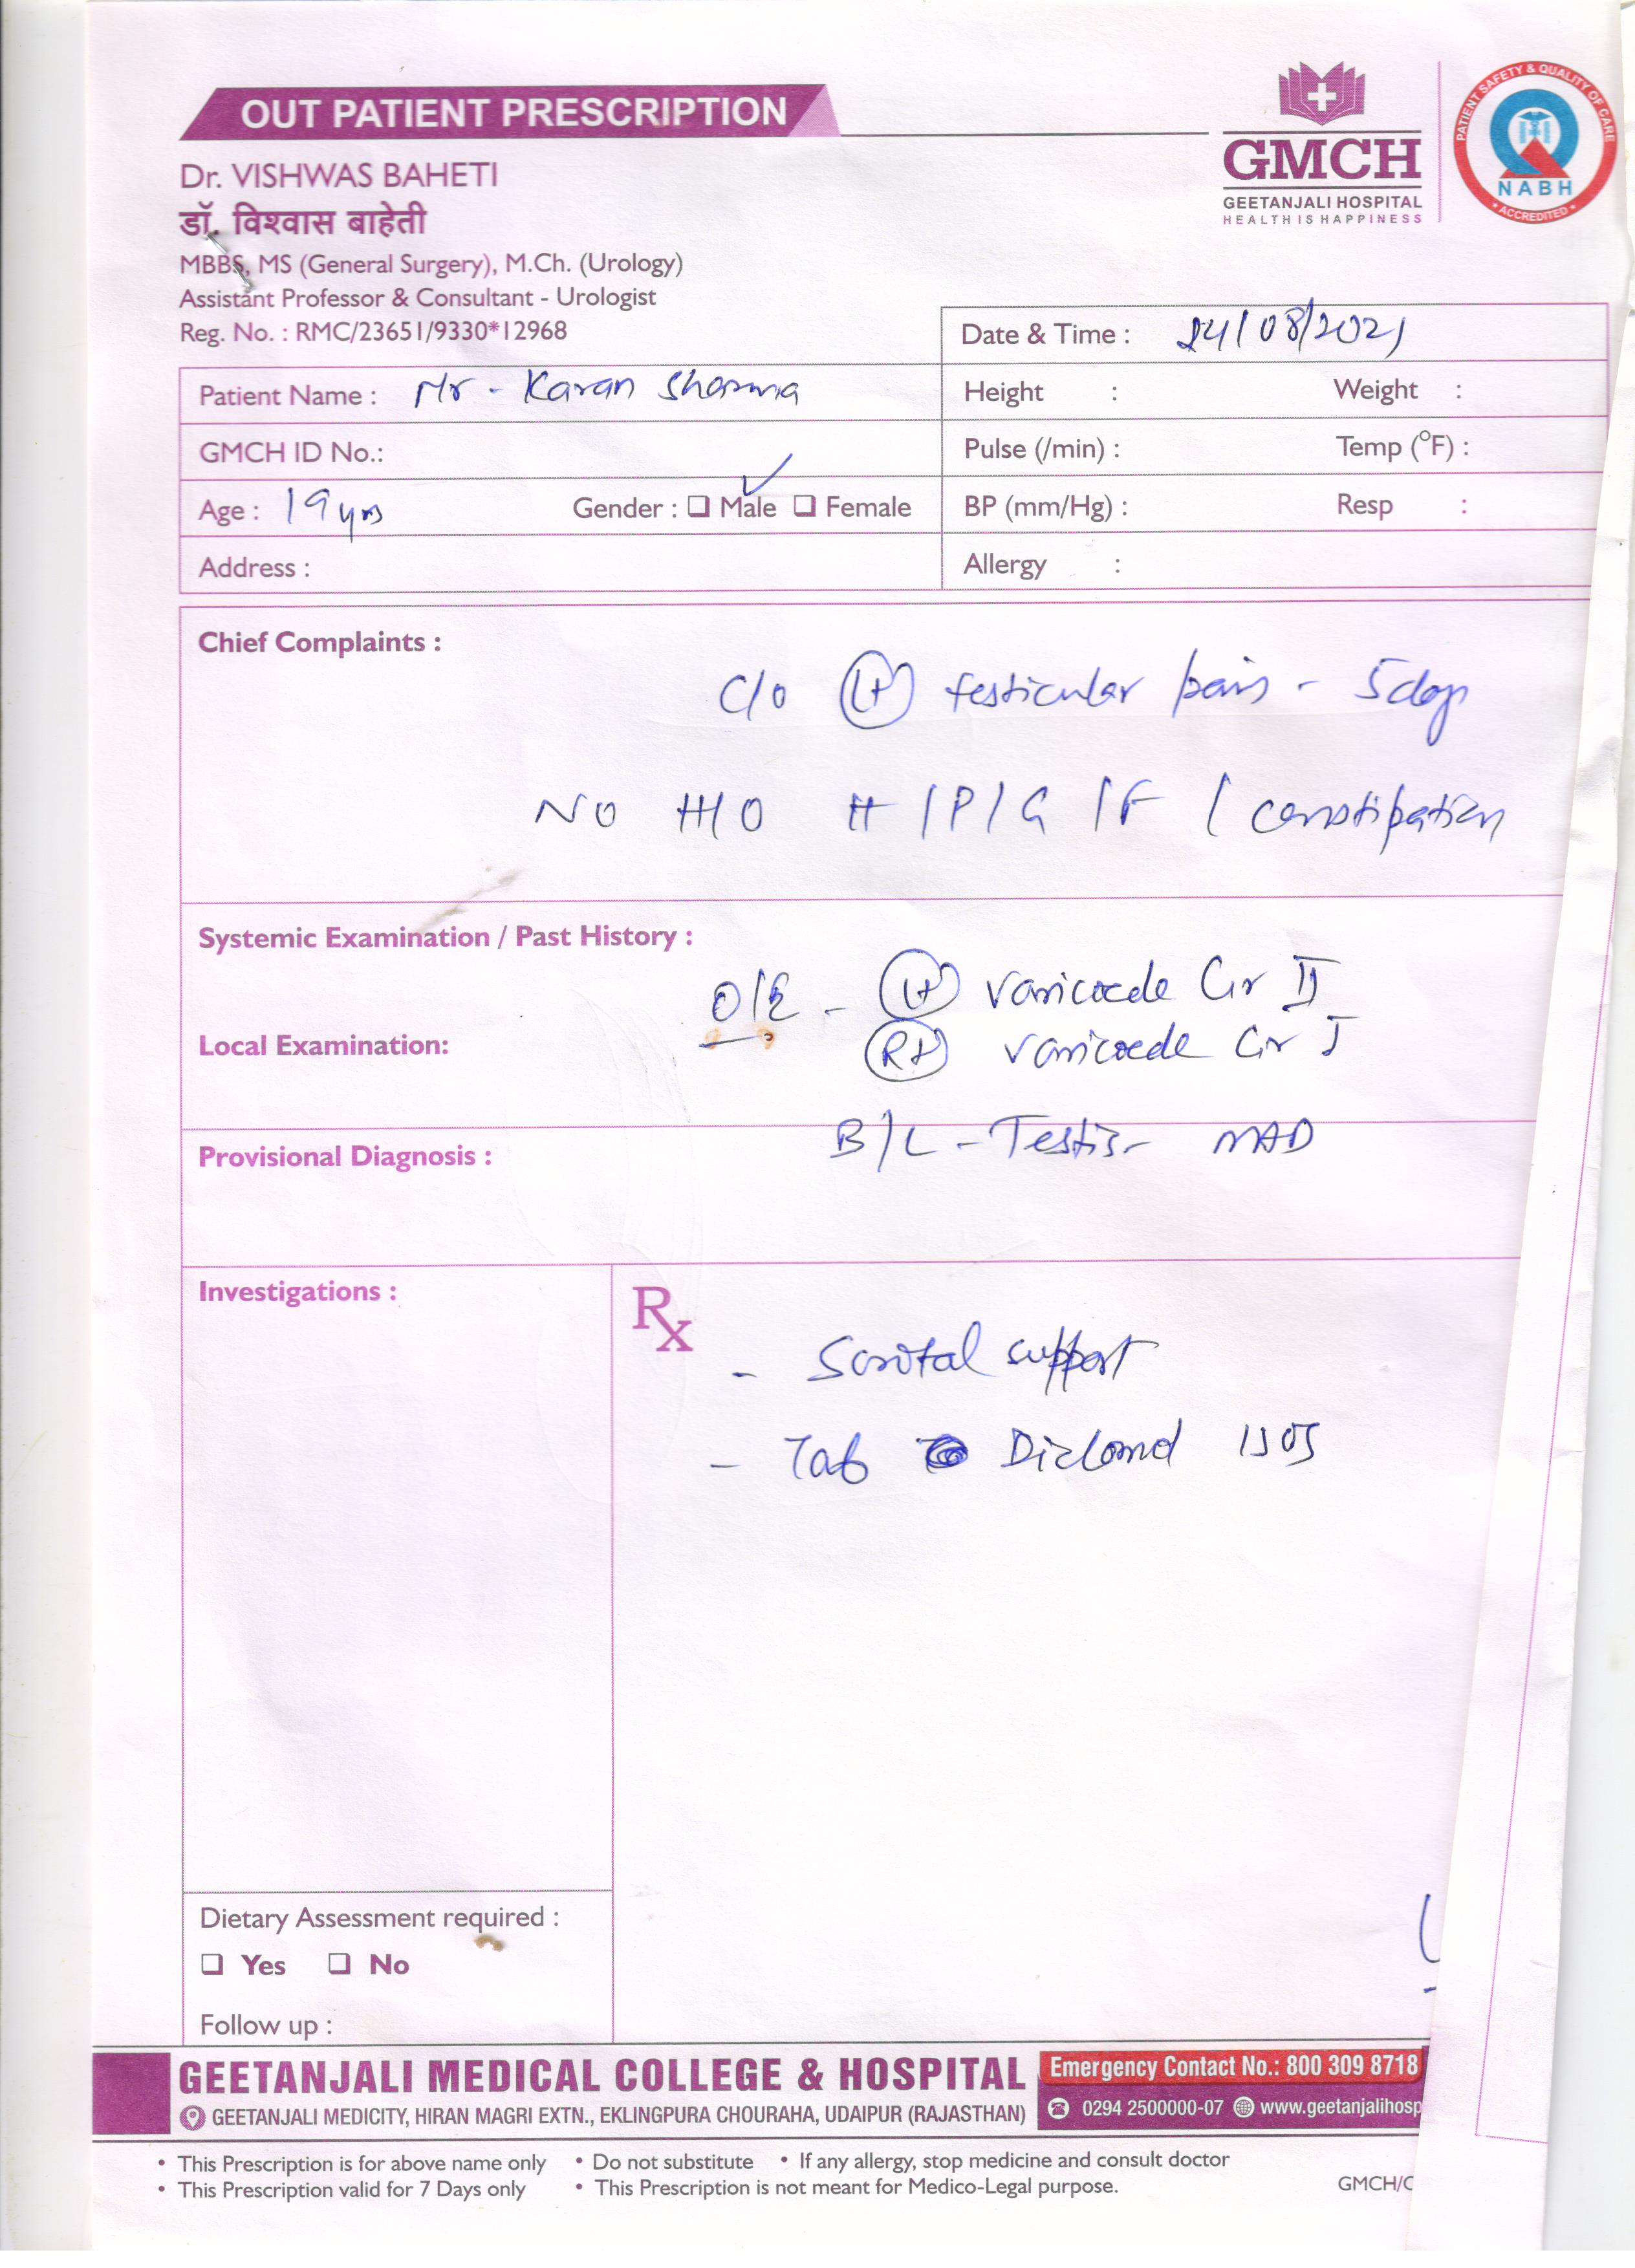 OUT PATIENT PRESCRIPTION
GMCH
GEETANJALI HOSPITAL
HEALTH IS HAPPINESS
PATIENT SAFETY & QUALITY OF CARE
NABH
• ACCREDITED •
Dr. VISHWAS BAHETI
डॉ. विश्वास बाहेती
MBBS, MS (General Surgery), M.Ch. (Urology)
Assistant Professor & Consultant - Urologist
Reg. No. : RMC/23651/9330*12968
Date & Time : 24/08/2021
Patient Name : Mr - Karan Sharma
Height : Weight :
GMCH ID No.:
Pulse (/min) : Temp (°F) :
Age : 19 yrs Gender : ❑ Male ❑ Female
BP (mm/Hg) : Resp :
Address :
Allergy :
Chief Complaints :
C/o Lt testicular pain - 5 days
No H/O H/P/G/F/constipation
Systemic Examination / Past History :
O/E - Lt varicocele Gr II
Local Examination:
Rt varicocele Gr I
B/L - Testis - NAD
Provisional Diagnosis :
Investigations :
Rx
- Scrotal support
- Tab Diclomol SOS
Dietary Assessment required :
❑ Yes ❑ No
Follow up :
GEETANJALI MEDICAL COLLEGE & HOSPITAL
GEETANJALI MEDICITY, HIRAN MAGRI EXTN., EKLINGPURA CHOURAHA, UDAIPUR (RAJASTHAN)
Emergency Contact No.: 800 309 8718
0294 2500000-07 www.geetanjalihosp
• This Prescription is for above name only • Do not substitute • If any allergy, stop medicine and consult doctor
• This Prescription valid for 7 Days only • This Prescription is not meant for Medico-Legal purpose.
GMCH/C